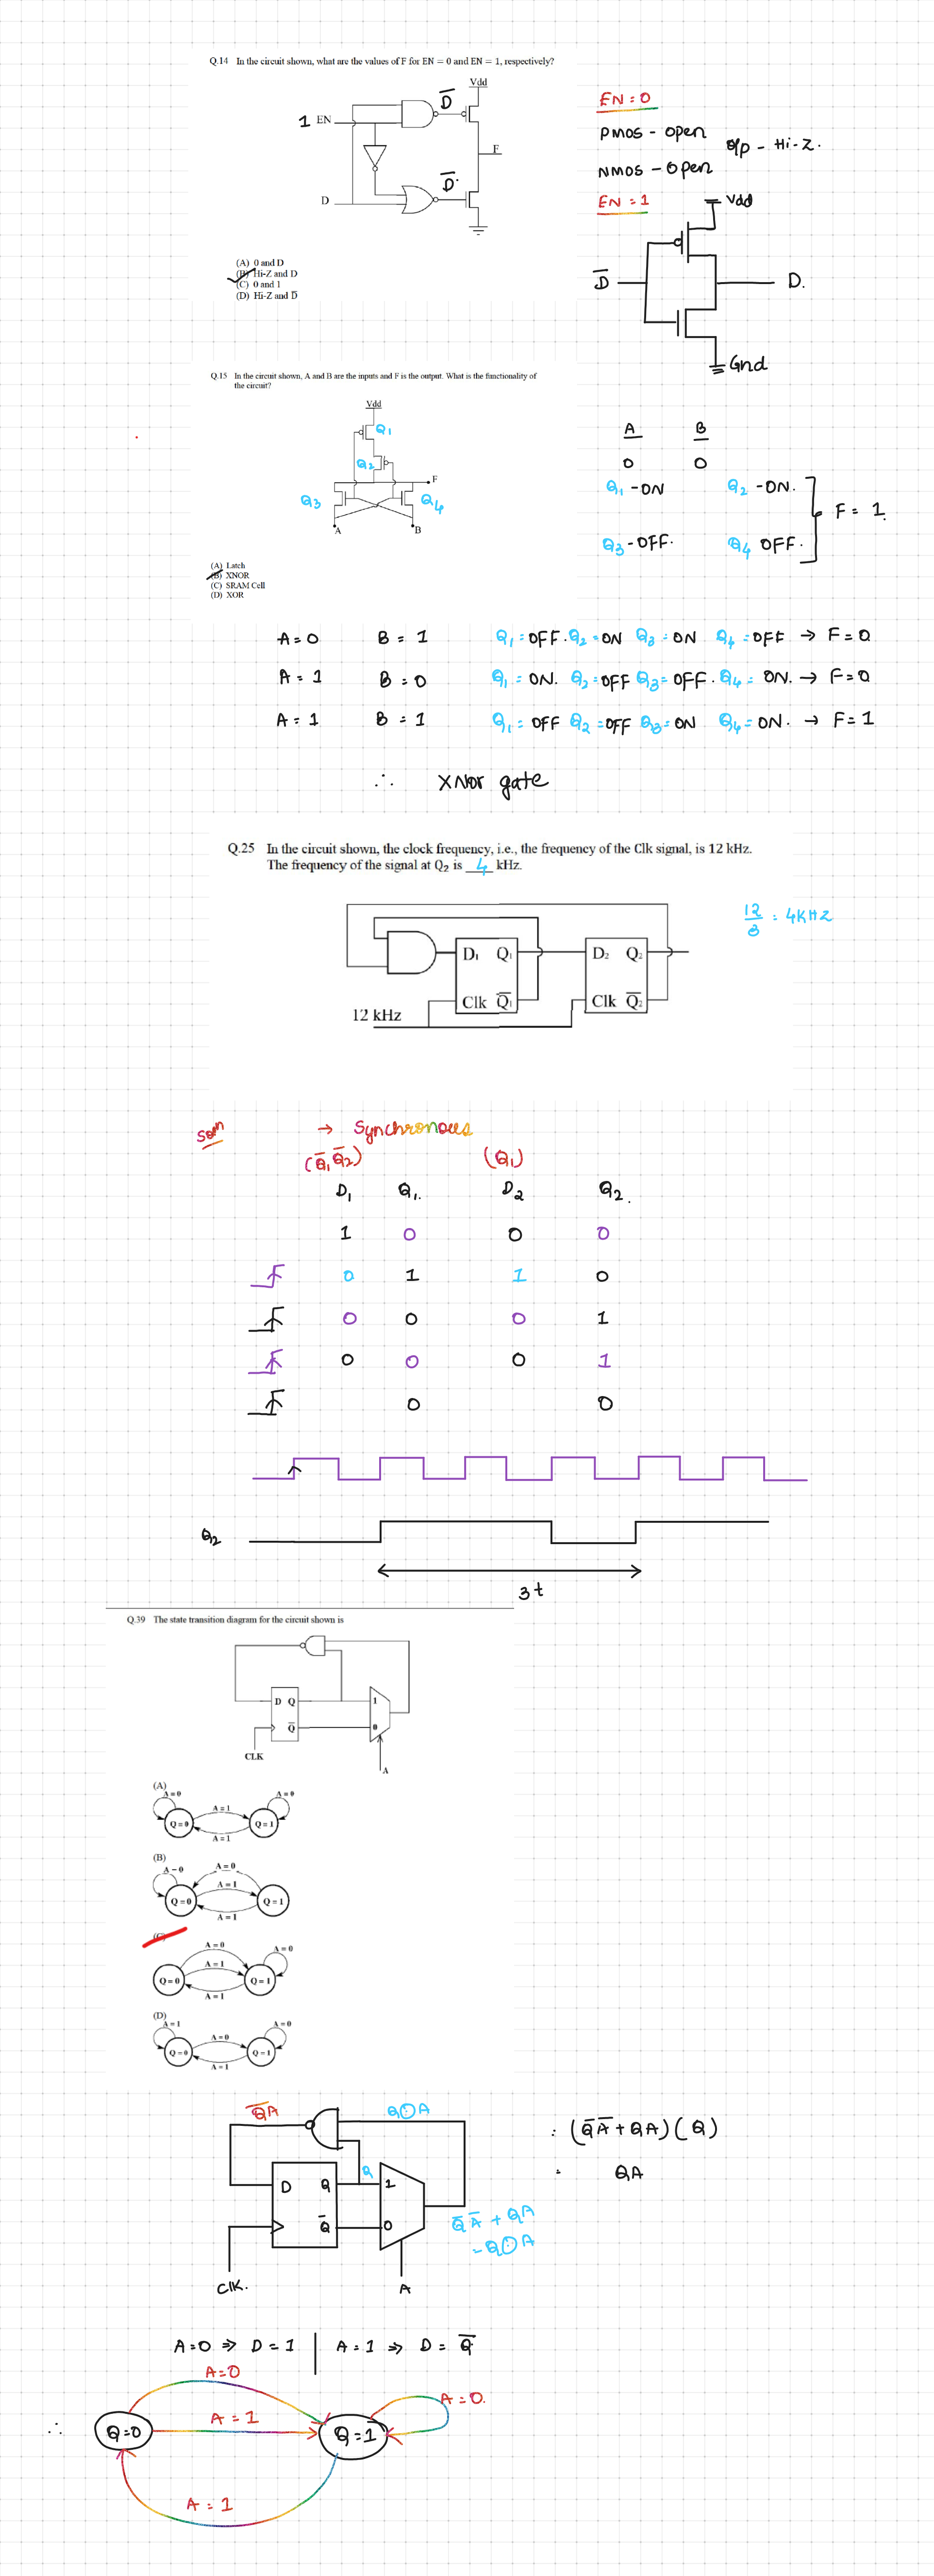 Q.14 In the circuit shown, what are the values of F for EN = 0 and EN = 1, respectively?
Vdd
D̅
1 EN
F
D̅
D
(A) 0 and D
(B) Hi-Z and D
(C) 0 and 1
(D) Hi-Z and D̅
EN = 0
PMOS - open
NMOS - open
o/p - Hi-Z.
EN = 1
Vdd
D̅
D.
Gnd
Q.15 In the circuit shown, A and B are the inputs and F is the output. What is the functionality of
the circuit?
Vdd
Q1
Q2
F
Q3
Q4
A
B
(A) Latch
(B) XNOR
(C) SRAM Cell
(D) XOR
A B
0 0
Q1 - ON Q2 - ON.
F = 1.
Q3 - OFF. Q4 OFF.
A = 0 B = 1 Q1 = OFF. Q2 = ON Q3 = ON Q4 = OFF → F = 0
A = 1 B = 0 Q1 = ON. Q2 = OFF Q3 = OFF. Q4 = ON. → F = 0
A = 1 B = 1 Q1 = OFF Q2 = OFF Q3 = ON Q4 = ON. → F = 1
∴ XNOR gate
Q.25 In the circuit shown, the clock frequency, i.e., the frequency of the Clk signal, is 12 kHz.
The frequency of the signal at Q2 is 4 kHz.
12/3 = 4KHZ
D1 Q1
D2 Q2
Clk Q̅1
Clk Q̅2
12 kHz
Soln
→ Synchronous
(Q̅1 Q̅2) (Q1)
D1 Q1. D2 Q2.
1 0 0 0
0 1 1 0
0 0 0 1
0 0 0 1
0 0
Q2
3t
Q.39 The state transition diagram for the circuit shown is
D Q
1
Q̅
0
CLK
A
(A)
A = 0
A = 0
A = 1
Q = 0
Q = 1
A = 1
(B)
A = 0
A = 0
A = 1
Q = 0
Q = 1
A = 1
(C)
A = 0
A = 0
A = 1
Q = 0
Q = 1
A = 1
(D)
A = 1
A = 0
A = 0
Q = 0
Q = 1
A = 1
Q̅A̅
Q⊙A
= (Q̅A̅ + QA)(Q)
= QA
Q
D Q
1
Q̅
0
Q̅A̅ + QA
= Q⊙A
Clk.
A
A = 0 ⇒ D = 1 | A = 1 ⇒ D = Q̅
A = 0
A = 0.
A = 1
∴ Q = 0
Q = 1
A = 1